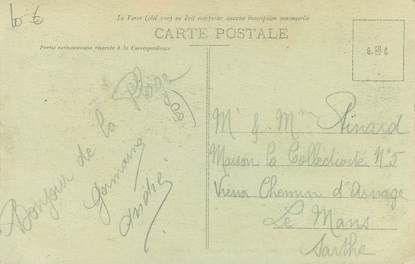 10 €
Le Verso (côté vue) ne doit contenir aucune inscription manuscrite
CARTE POSTALE
Partie exclusivement réservée à la Correspondance
Bonjour de la Plage
Germaine
André
Mr & Mme Pinard
Maison La Collectivité N° 5
Vieux Chemin d'Arnage
Le Mans
Sarthe